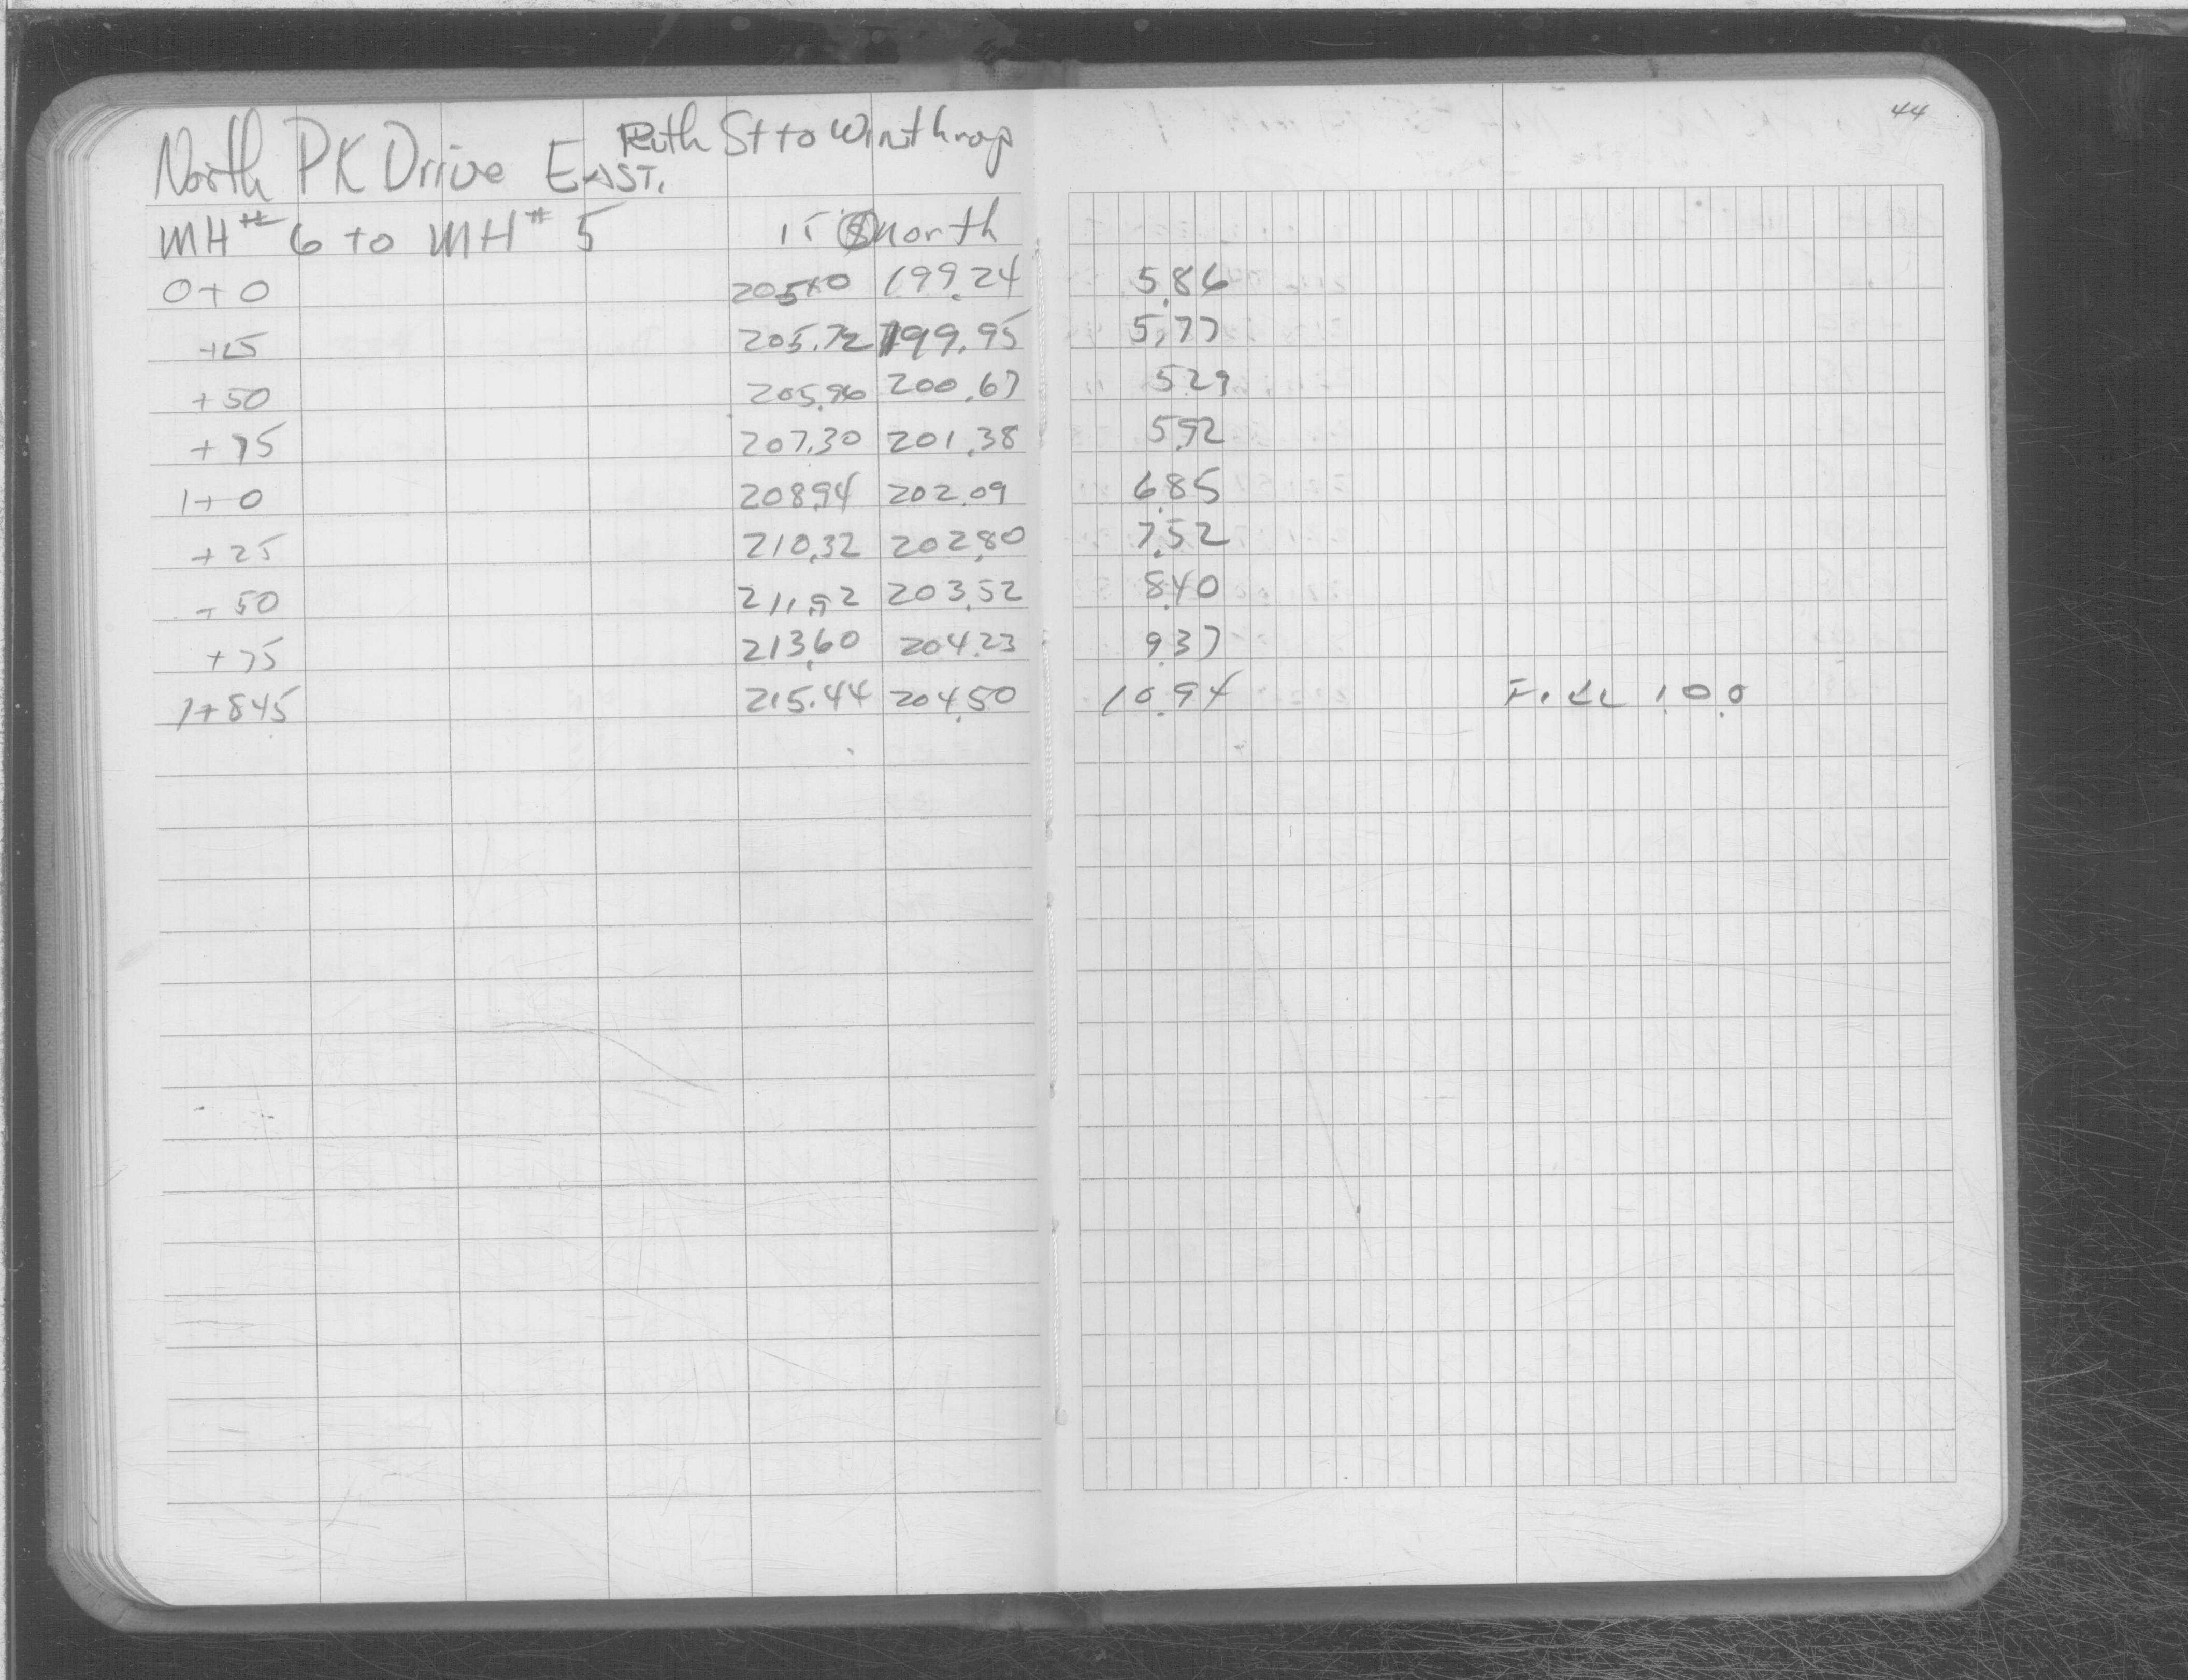 44
North PK Drive East. Ruth St to Winthrop
MH# 6 to MH# 5 15' North
0+0 205.10 199.24 5.86
+25 205.72 199.95 5.77
+50 205.96 200.67 5.29
+75 207.30 201.38 5.92
1+0 208.94 202.09 6.85
+25 210.32 202.80 7.52
+50 211.92 203.52 8.40
+75 213.60 204.23 9.37
1+84.5 215.44 204.50 10.94 Fill 1.0.0